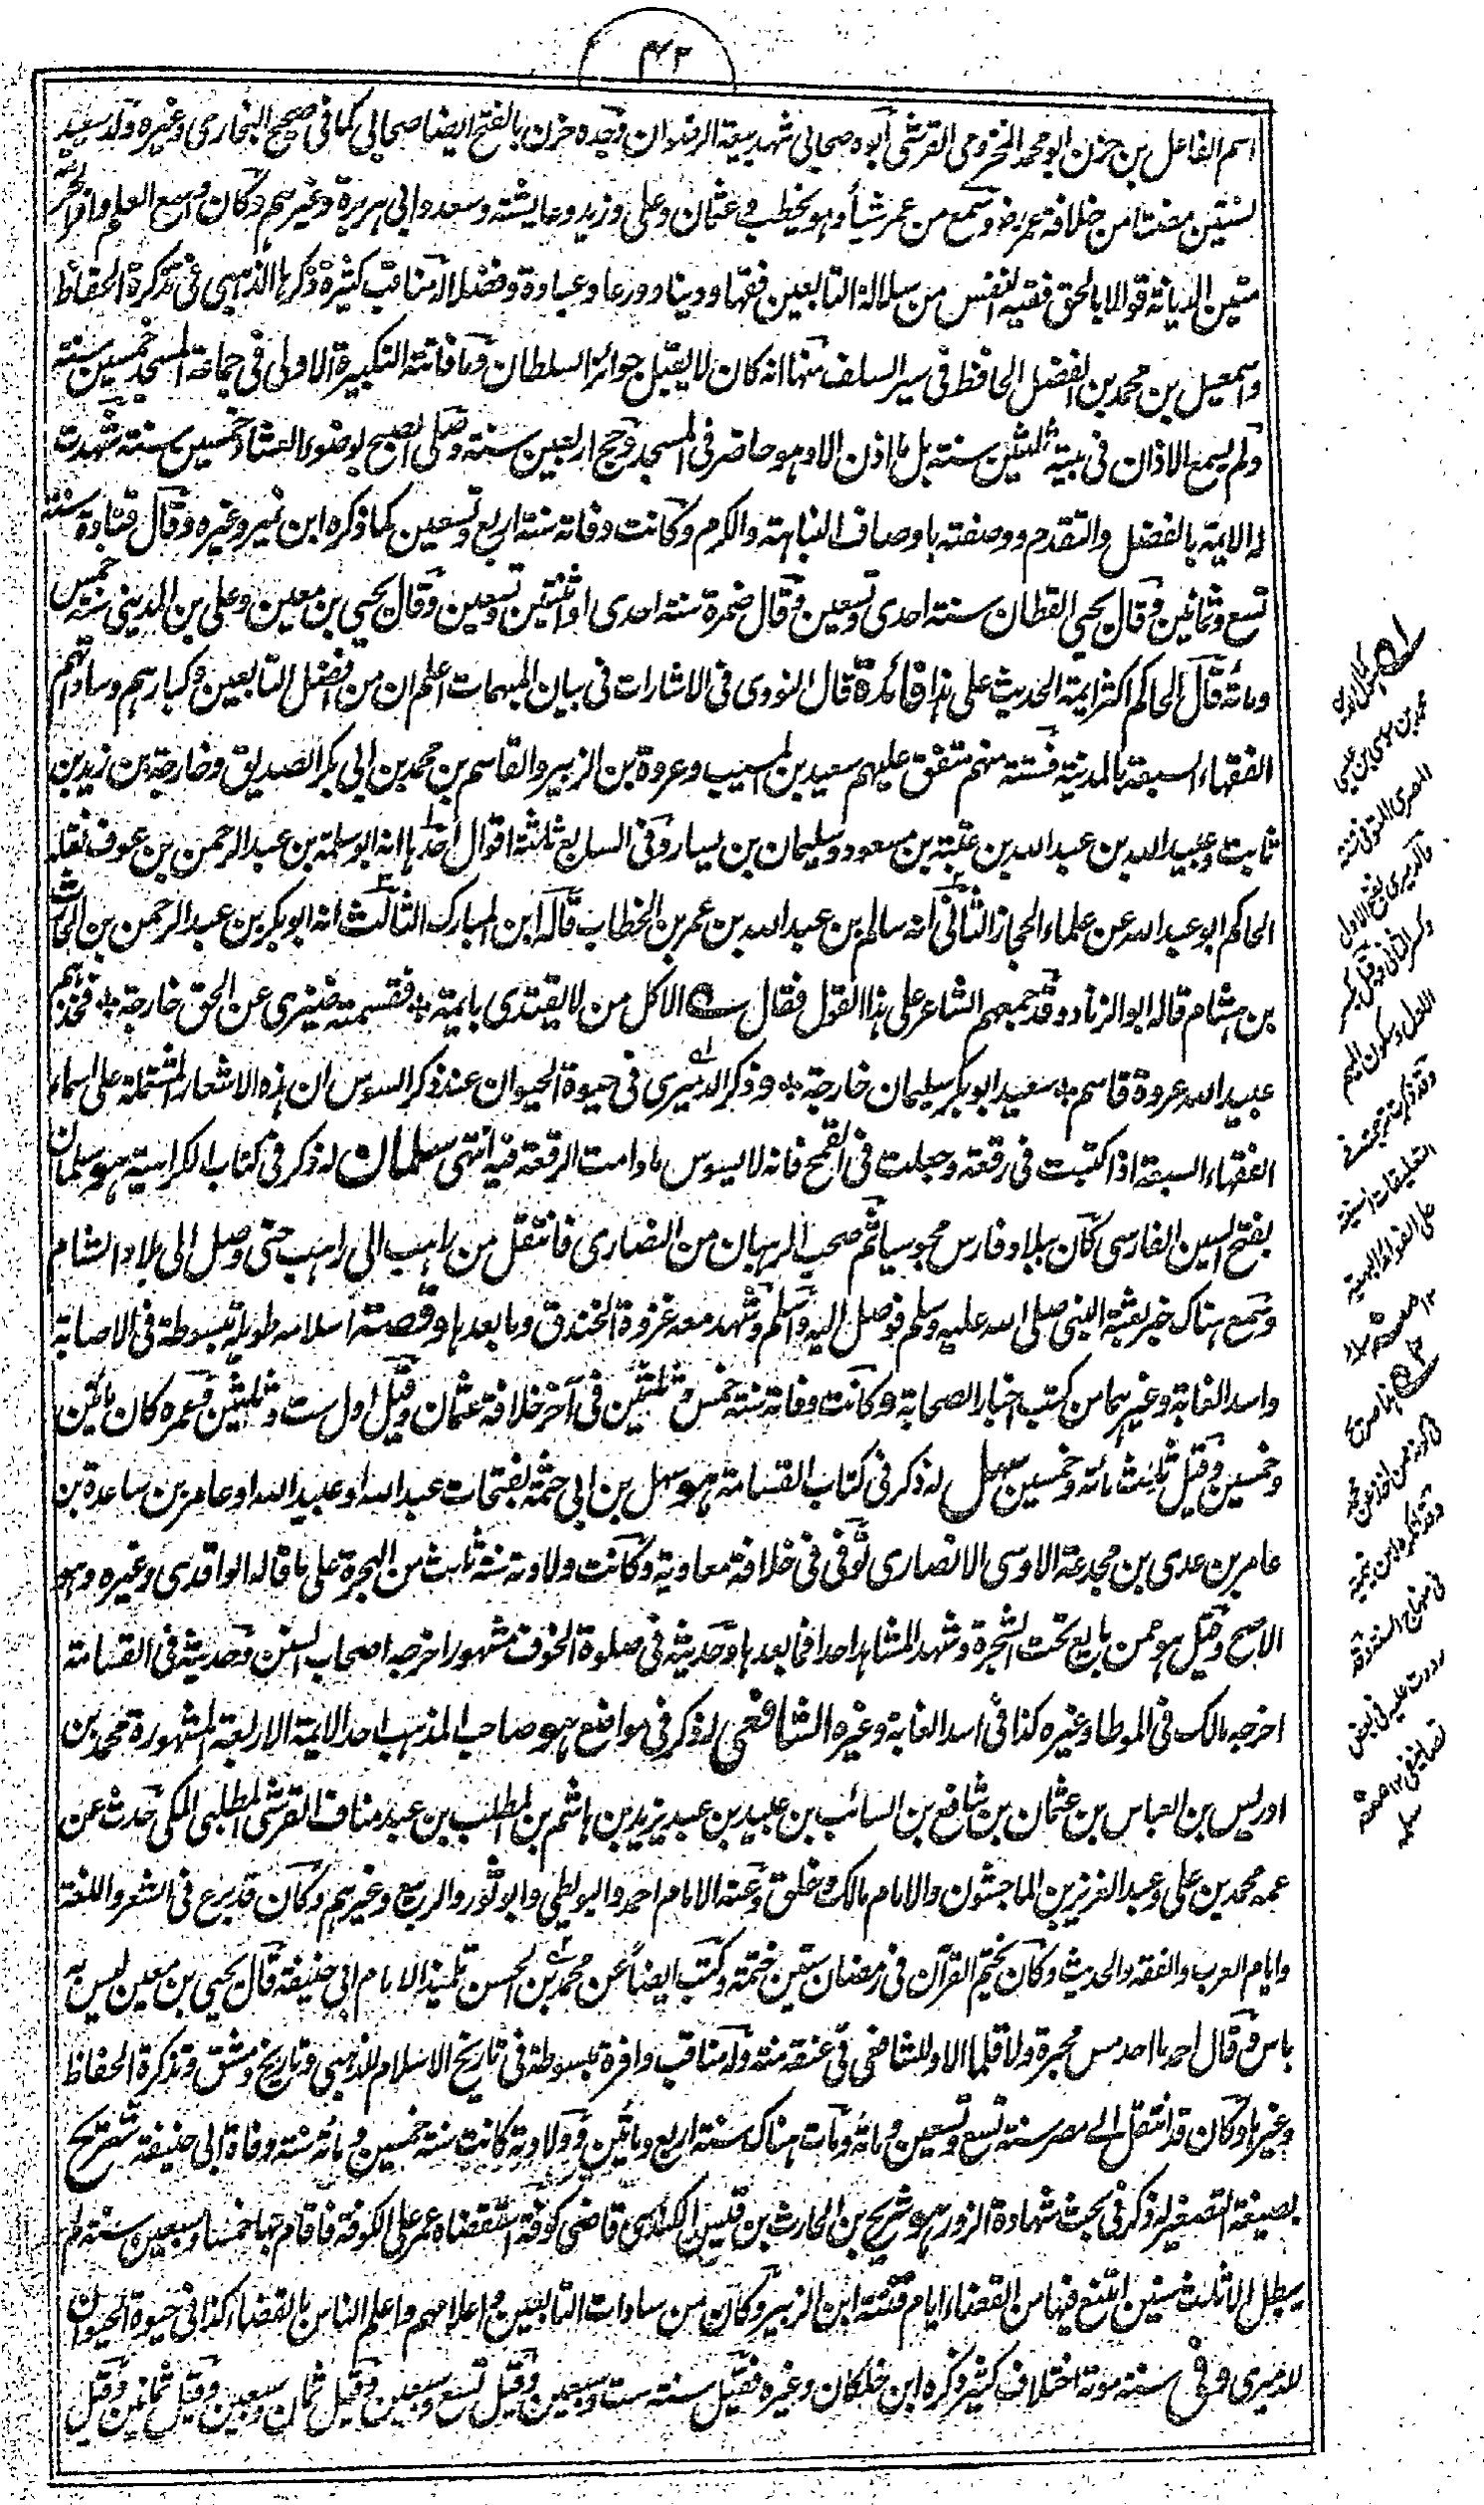 ٤٣
اسم الفاعل بن حزن ابو محمد المخزومى القرشى ابوه صحابى شهد بيعة الرضوان وجده حزن بالفتح ايضا صحابى كما فى صحيح البخارى وغيره ولد سعيد
لسنتين مضتا من خلافة عمر رض وسمع من عمر شيأ وهو يخطب و عثمان وعلى وزيد وعايشة وسعد وابى هريرة وغيرهم وكان واسع العلم وافر
متين الديانة قوالا بالحق فقيه النفس من سلالة التابعين فقها ودينا وورعا وعبادة وفضلا له مناقب كثيرة ذكرها الذهبى فى تذكرة الحفاظ
واسمعيل بن محمد بن الفضل الحافظ فى سير السلف منها انه كان لا يقبل جوائز السلطان وما فاتته التكبيرة الاولى فى جماعة المسجد خمسين سنة
ولم يسمع الاذان فى بيته ثلثين سنة بل ما اذن الا وهو حاضر فى المسجد وحج اربعين سنة وصلى الصبح بوضوء العشاء خمسين سنة شهدت
له الايمة بالفضل والتقدم ووصفته باوصاف النباهة والكرم وكانت وفاته سنة اربع وتسعين كما ذكره ابن نمير وغيره وقال قتادة سنة
تسع وثمانين وقال يحيى القطان سنة احدى وتسعين وقال ضمرة سنة احدى او اثنتين وتسعين وقال يحيى بن معين وعلى بن المدينى سنة خمس
ومائة قال الحاكم اكثر ايمة الحديث على هذا فائدة قال النووى فى الاشارات فى بيان المبهمات اعلم ان من افضل التابعين وكبارهم وساداتهم
الفقهاء السبعة بالمدينة فستة منهم متفق عليهم سعيد بن المسيب وعروة بن الزبير والقاسم بن محمد بن ابى بكر الصديق وخارجة بن زيد بن
ثابت وعبيد الله بن عبد الله بن عتبة بن مسعود وسليمان بن يسار وفى السابع ثلثة اقوال احدها انه ابو سلمة بن عبد الرحمن بن عوف نقله
الحاكم ابو عبد الله عن علماء الحجاز الثانى انه سالم بن عبد الله بن عمر بن الخطاب قاله ابن المبارك الثالث انه ابو بكر بن عبد الرحمن بن الحارث
بن هشام قاله ابو الزناد وقد جمعهم الشاعر على هذا القول فقال الا كل من لا يقتدى بايمة ٭ فقسمته ضيزى عن الحق خارجة ٭ فخذهم
عبيد الله عروة قاسم ٭ سعيد ابو بكر سليمان خارجة ٭ وذكر الدميرى فى حيوة الحيوان عند ذكر السوس ان هذه الاشعار المشتملة على اسماء
الفقهاء السبعة اذا كتبت فى رقعة وجعلت فى القمح فانه لا يسوس ما دامت الرقعة فيه انتهى سلمان له ذكر فى كتاب الكراهية هو سلمان
بفتح السين الفارسى كان ببلاد فارس مجوسيا ثم صحب الرهبان من النصارى فانتقل من راهب الى راهب حتى وصل الى بلاد الشام
وسمع هناك خبر بعثة النبى صلى الله عليه وسلم فوصل اليه واسلم وشهد معه غزوة الخندق وما بعدها وقصة اسلامه طويلة مبسوطة فى الاصابة
واسد الغابة وغيرهما من كتب اخبار الصحابة وكانت وفاته سنة خمس وثلثين فى آخر خلافة عثمان وقيل اول ست وثلثين وعمره كان مائتين
وخمسين وقيل ثلث مائة وخمسين سهل له ذكر فى كتاب القسامة هو سهل بن ابى حثمة بفتحات عبد الله او عبيد الله او عامر بن ساعدة بن
عامر بن عدى بن مجدعة الاوسى الانصارى توفى فى خلافة معاوية وكانت ولادته سنة ثلث من الهجرة على ما قاله الواقدى وغيره وهو
الاصح وقيل هو ممن بايع تحت الشجرة وشهد المشاهد احدا فما بعدها وحديثه فى صلوة الخوف مشهور اخرجه اصحاب السنن وحديثه فى القسامة
اخرجه مالك فى الموطا وغيره كذا فى اسد الغابة وغيره الشافعى له ذكر فى مواضع هو صاحب المذهب احد الايمة الاربعة المشهورة محمد بن
ادريس بن العباس بن عثمان بن شافع بن السائب بن عبيد بن عبد يزيد بن هاشم بن المطلب بن عبد مناف القرشى المطلبى المكى حدث عن
عمه محمد بن على وعبد العزيز بن الماجشون والامام مالك وخلق وعنه الامام احمد والبويطى وابو ثور والربيع وغيرهم وكان قد برع فى الشعر واللغة
وايام العرب والفقه والحديث وكان يختم القرآن فى رمضان ستين ختمة وكتب ايضا عن محمد بن الحسن تلميذ الامام ابى حنيفة قال يحيى بن معين ليس به
باس وقال احمد ما احد مس محبرة ولا قلما الا وللشافعى فى عنقه منة وله مناقب وافرة مبسوطة فى تاريخ الاسلام للذهبى وتاريخ دمشق وتذكرة الحفاظ
وغيرها وكان قد انتقل الى مصر سنة تسع وتسعين ومائة ومات هناك سنة اربع ومائتين وولادته كانت سنة خمسين ومائة سنة وفاة ابى حنيفة شريح
بصيغة التصغير له ذكر فى بحث شهادة الزور هو شريح بن الحارث بن قيس الكندى قاضى كوفة استقضاه عمر على الكوفة فاقام بها خمسا وسبعين سنة لم
يبطل الا ثلث سنين امتنع فيها من القضاء ايام فتنة ابن الزبير وكان من سادات التابعين واعلامهم واعلم الناس بالقضاء كذا فى حيوة الحيوان
للدميرى وفى سنة موته اختلاف كثير ذكره ابن خلكان وغيره فقيل سنة ست وسبعين وقيل تسع وسبعين وقيل ثمان وسبعين وقيل ثمانين وقيل
محمد بن موسى بن عيسى
المصرى المتوفى سنة
الاول وسكون الميم
وقد ذكرت ترجمته فى
التعليقات السنية
على الفوائد البهية
وقد انكره ابن تيمية
فى منهاج السنة وقد
رددت عليه فى بعض
تصانيفى ١٢ منه